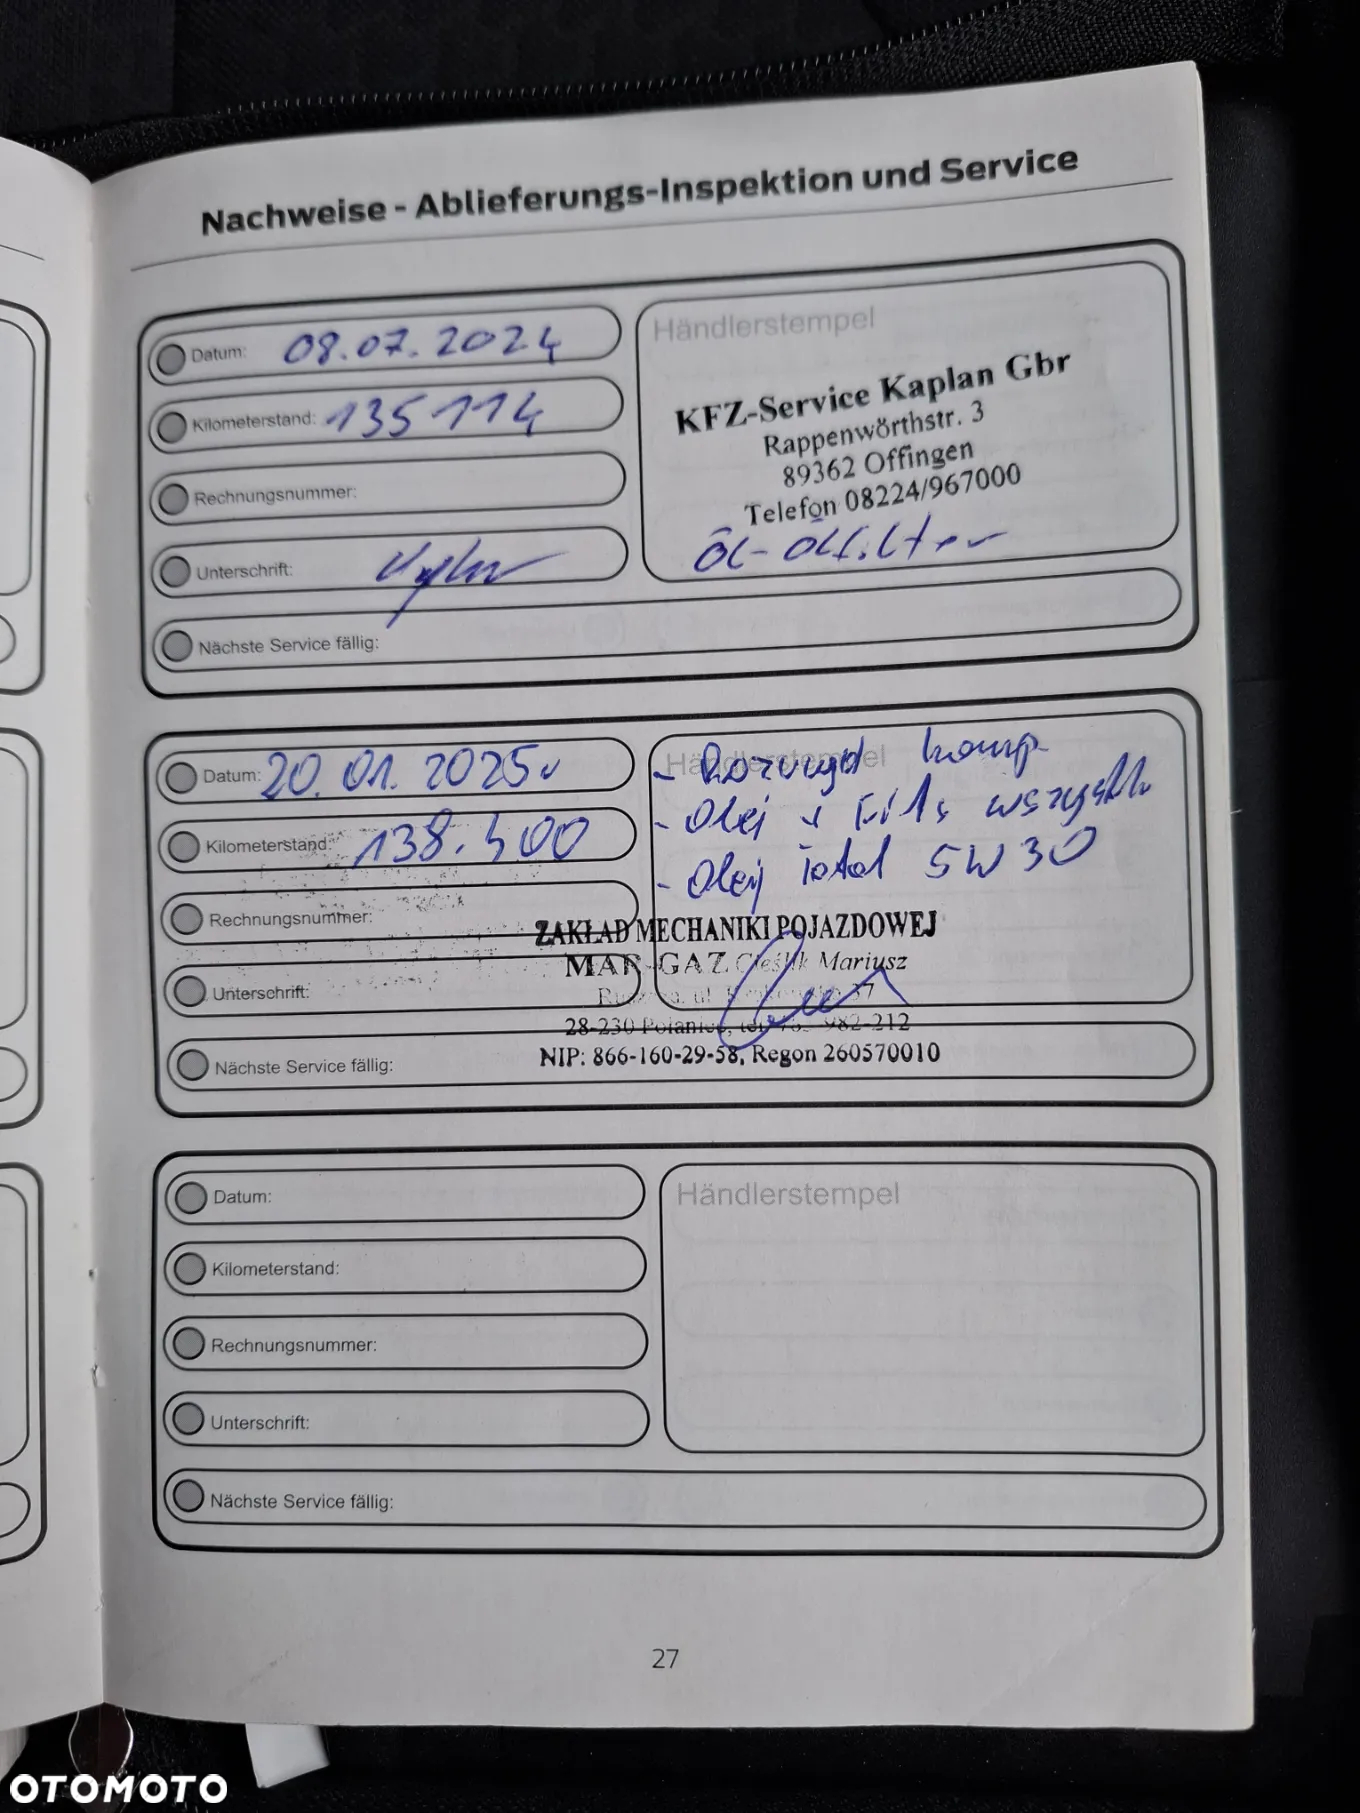 Nachweise - Ablieferungs-Inspektion und Service
Datum: 08.07.2024
Kilometerstand: 135 114
Rechnungsnummer:
Unterschrift:
Nächste Service fällig:
Händlerstempel
KFZ-Service Kaplan Gbr
Rappenwörthstr. 3
89362 Offingen
Telefon 08224/967000
Öl-Ölfilter
Datum: 20.01.2025r
Kilometerstand: 138.500
Rechnungsnummer:
Unterschrift:
Nächste Service fällig:
Händlerstempel
- Rozrząd komp
- Olej + Filtr wszystk
- Olej Total 5W30
ZAKŁAD MECHANIKI POJAZDOWEJ
MAR-GAZ Cieślik Mariusz
ul. 37
28-230 Połaniec, tel. 982-212
NIP: 866-160-29-58, Regon 260570010
Datum:
Kilometerstand:
Rechnungsnummer:
Unterschrift:
Nächste Service fällig:
Händlerstempel
27
OTOMOTO